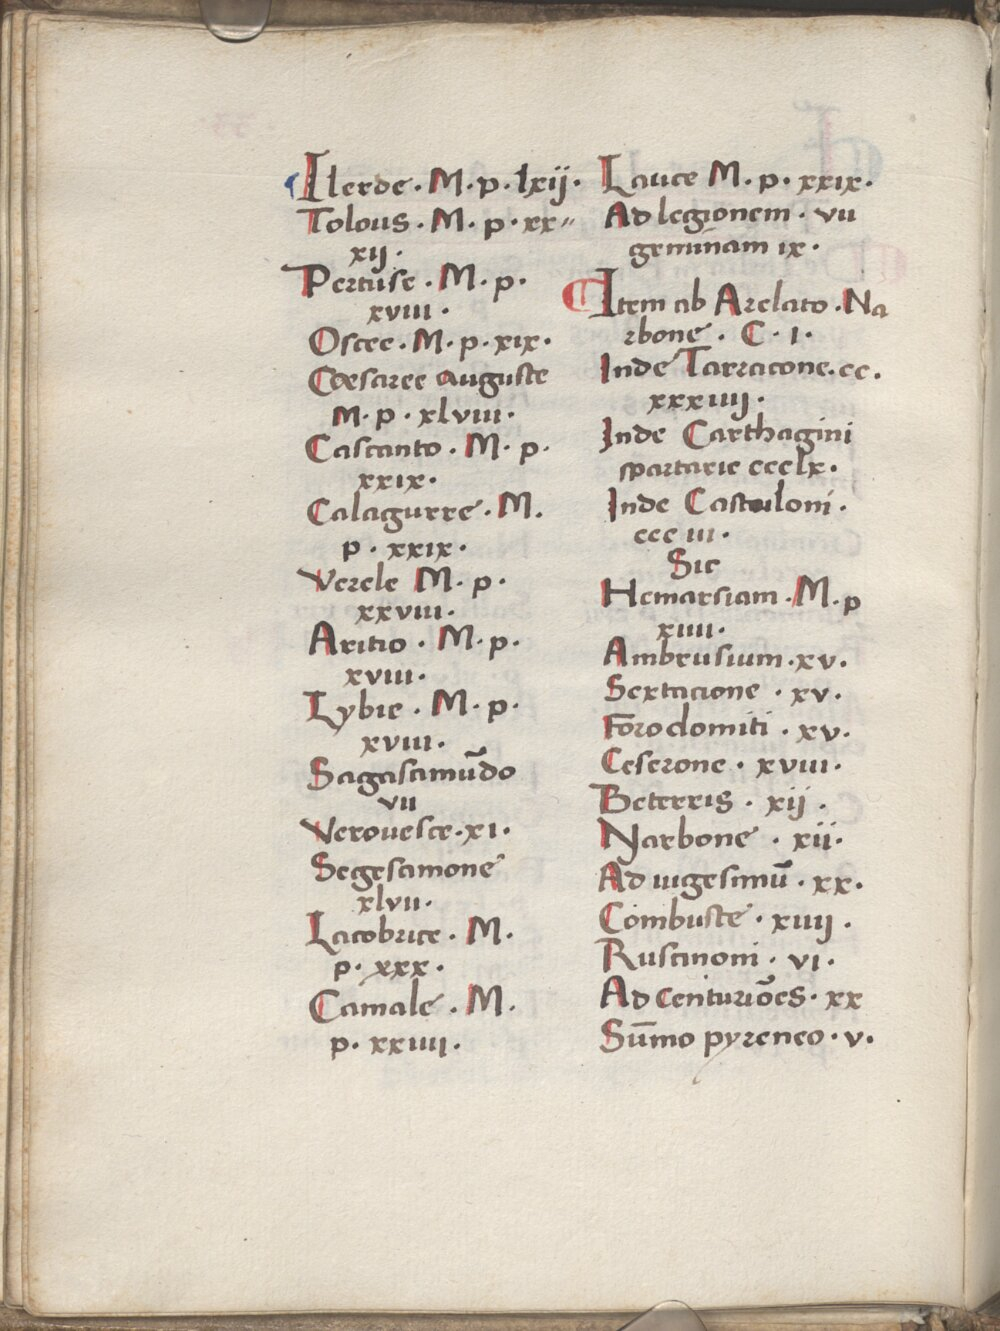 Ilerde · M · p · lxij ·
Tolous · M · p · xx
xij ·
Pertuse · M · p ·
xviii ·
Oscee · M · p · xix ·
Cæsaree auguste
M · p · xlviii ·
Cascanto · M · p ·
xxix ·
Calagurre · M ·
p · xxix ·
Verele M · p ·
xxviii ·
Aritio · M · p ·
xviii ·
Lybie · M · p ·
xviii ·
Sagasamūdo
vii
Verouesce · xi ·
Segesamone
xlvii ·
Lacobrice · M ·
p · xxx ·
Camale · M ·
p · xxiiii ·
Lance M · p · xxix ·
Ad legionem · vii
geminam ix ·
Item ab Arelato · Na
rbone · C · I ·
Inde Tarracone · cc ·
xxxiiij ·
Inde Carthagini
spartarie ccclx ·
Inde Castuloni ·
ccc iii ·
Sic
Hemarsiam · M · p
xiiii ·
Ambrusium · xv ·
Sextacione · xv ·
Forodomiti · xv ·
Ceserone · xviii ·
Beterris · xij ·
Narbone · xii ·
Ad uigesimū · xx ·
Combuste · xiiij ·
Ruscinoni · vi ·
Ad centuriōes · xx
Sūmo pyreneo · v ·